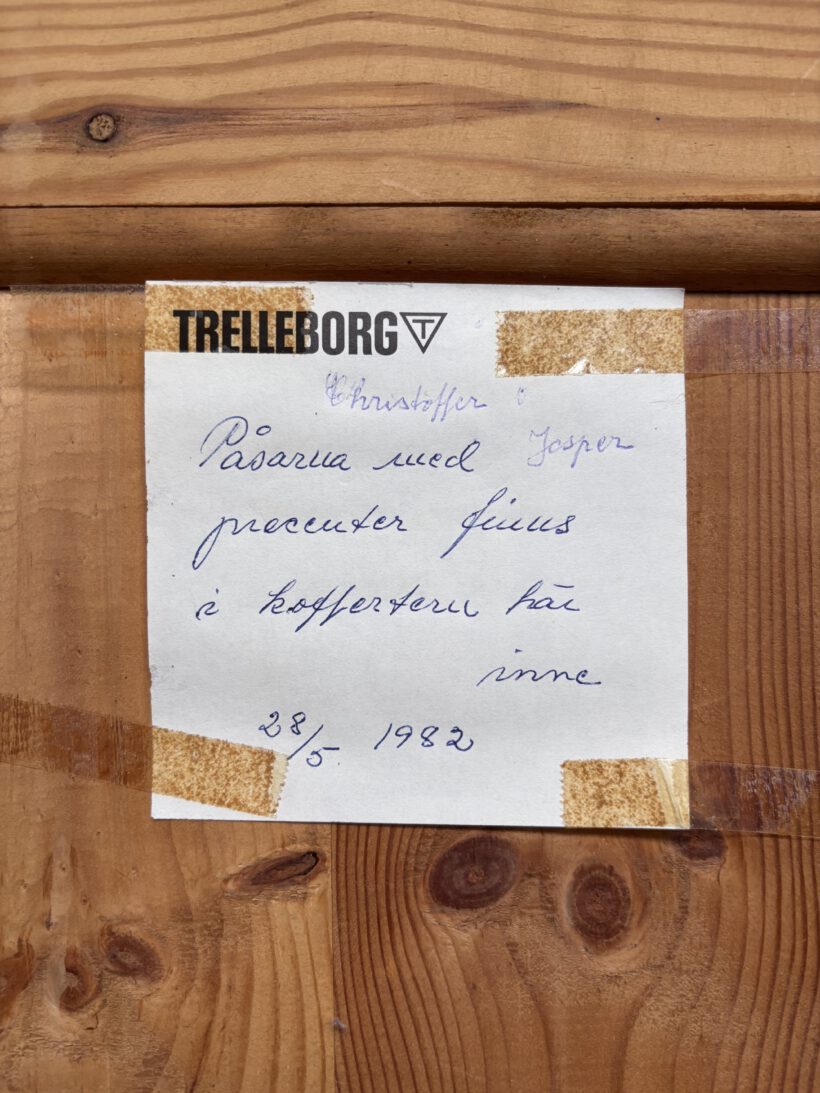 TRELLEBORG T
Christoffer
Jesper
Påsarna med
presenter finns
i kofferten här
inne
28/5 1982